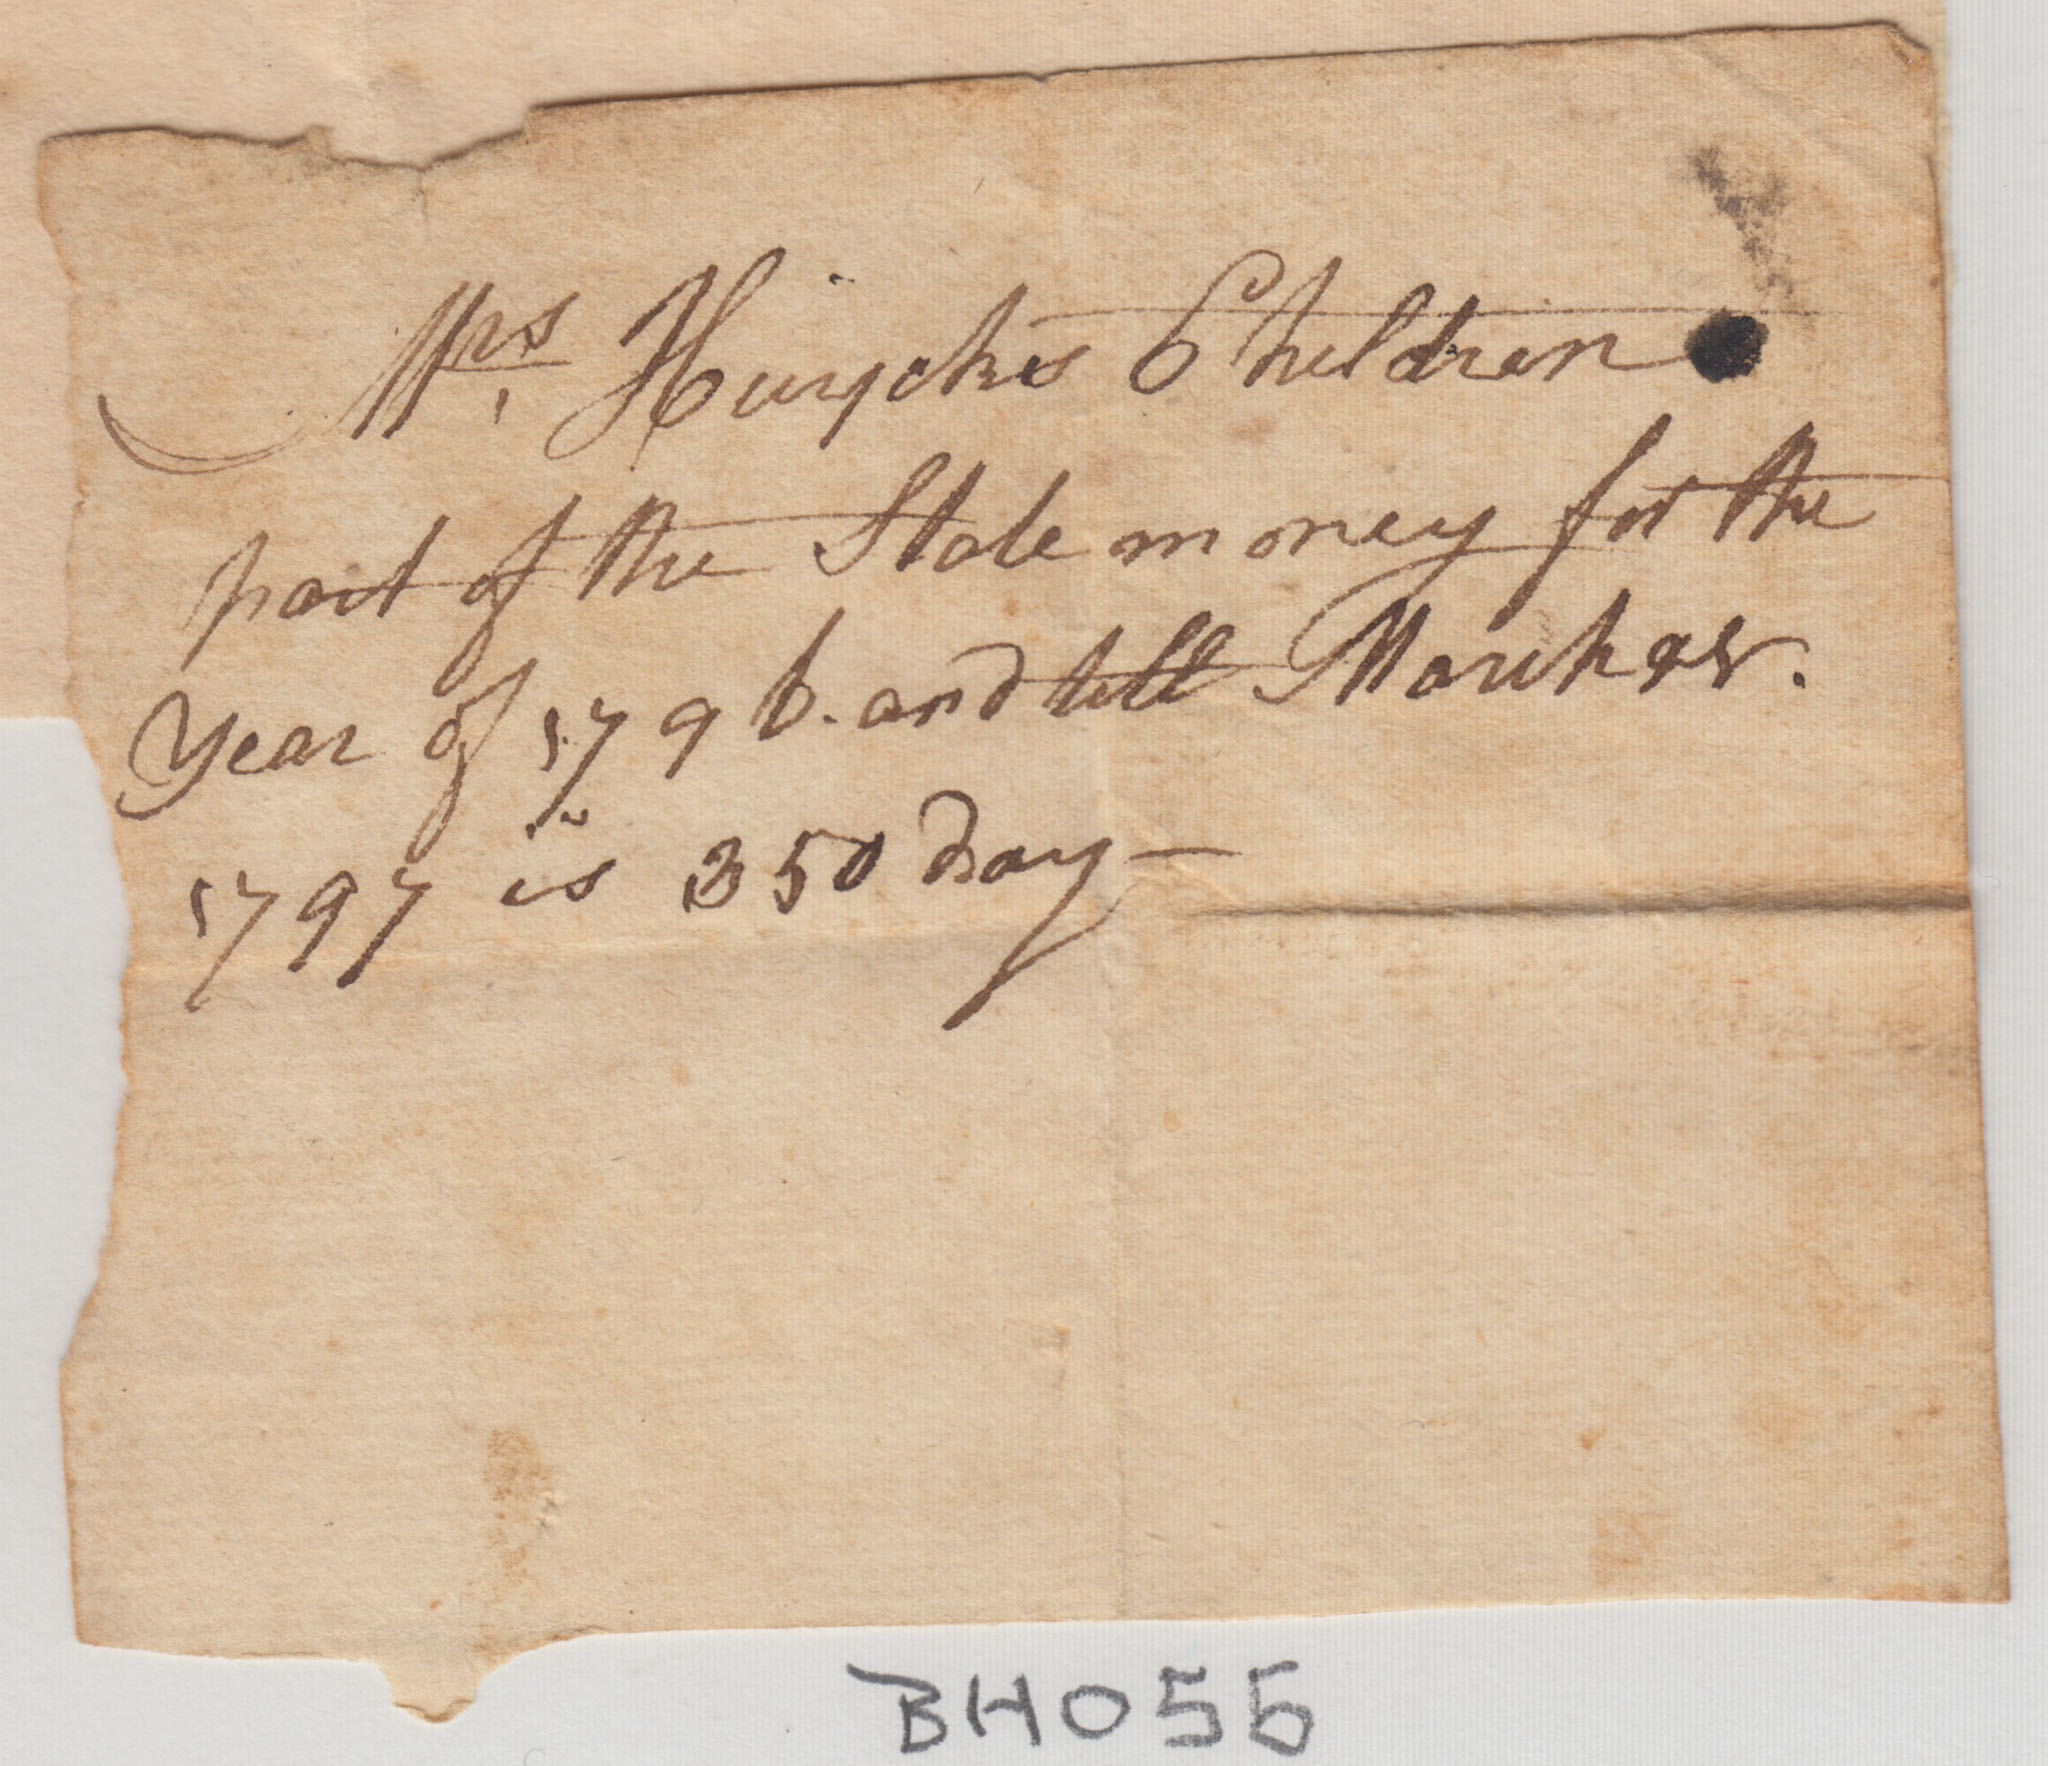 Mrs. Huyckes Children
part of the State money for the
Year of 1796. and till March 28.
1797 is 350 Day —
BH055